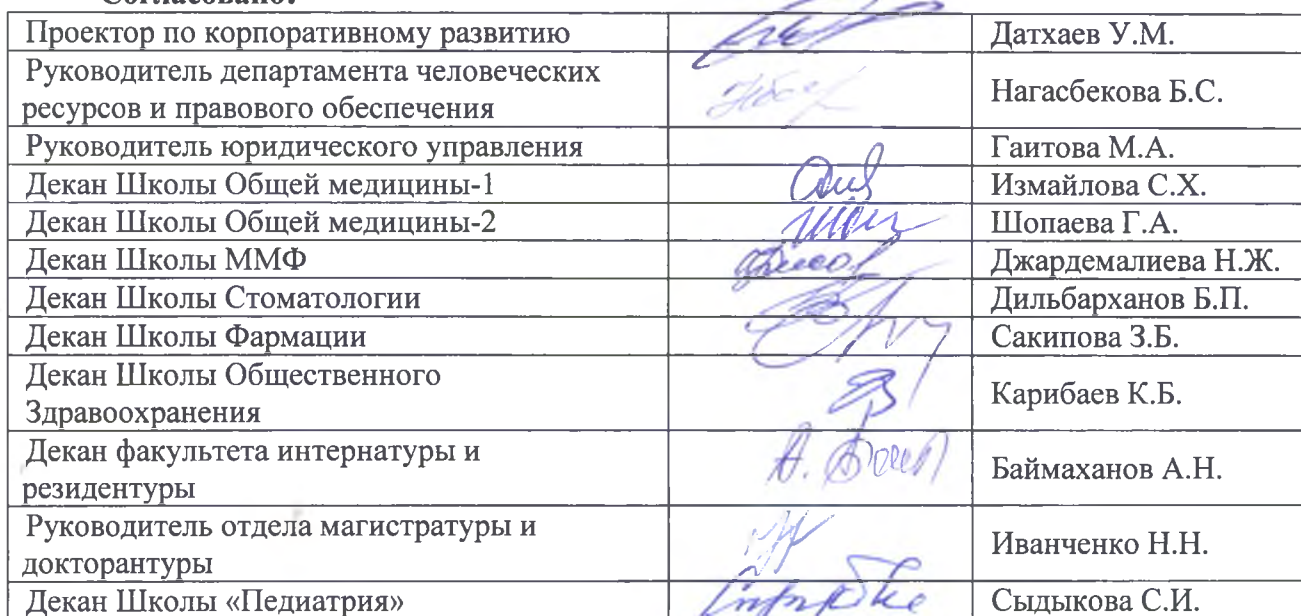 Согласовано:
Проектор по корпоративному развитию Датхаев У.М.
Руководитель департамента человеческих
ресурсов и правового обеспечения Нагасбекова Б.С.
Руководитель юридического управления Гаитова М.А.
Декан Школы Общей медицины-1 Измайлова С.Х.
Декан Школы Общей медицины-2 Шопаева Г.А.
Декан Школы ММФ Джардемалиева Н.Ж.
Декан Школы Стоматологии Дильбарханов Б.П.
Декан Школы Фармации Сакипова З.Б.
Декан Школы Общественного
Здравоохранения Карибаев К.Б.
Декан факультета интернатуры и
резидентуры Баймаханов А.Н.
Руководитель отдела магистратуры и
докторантуры Иванченко Н.Н.
Декан Школы «Педиатрия» Сыдыкова С.И.